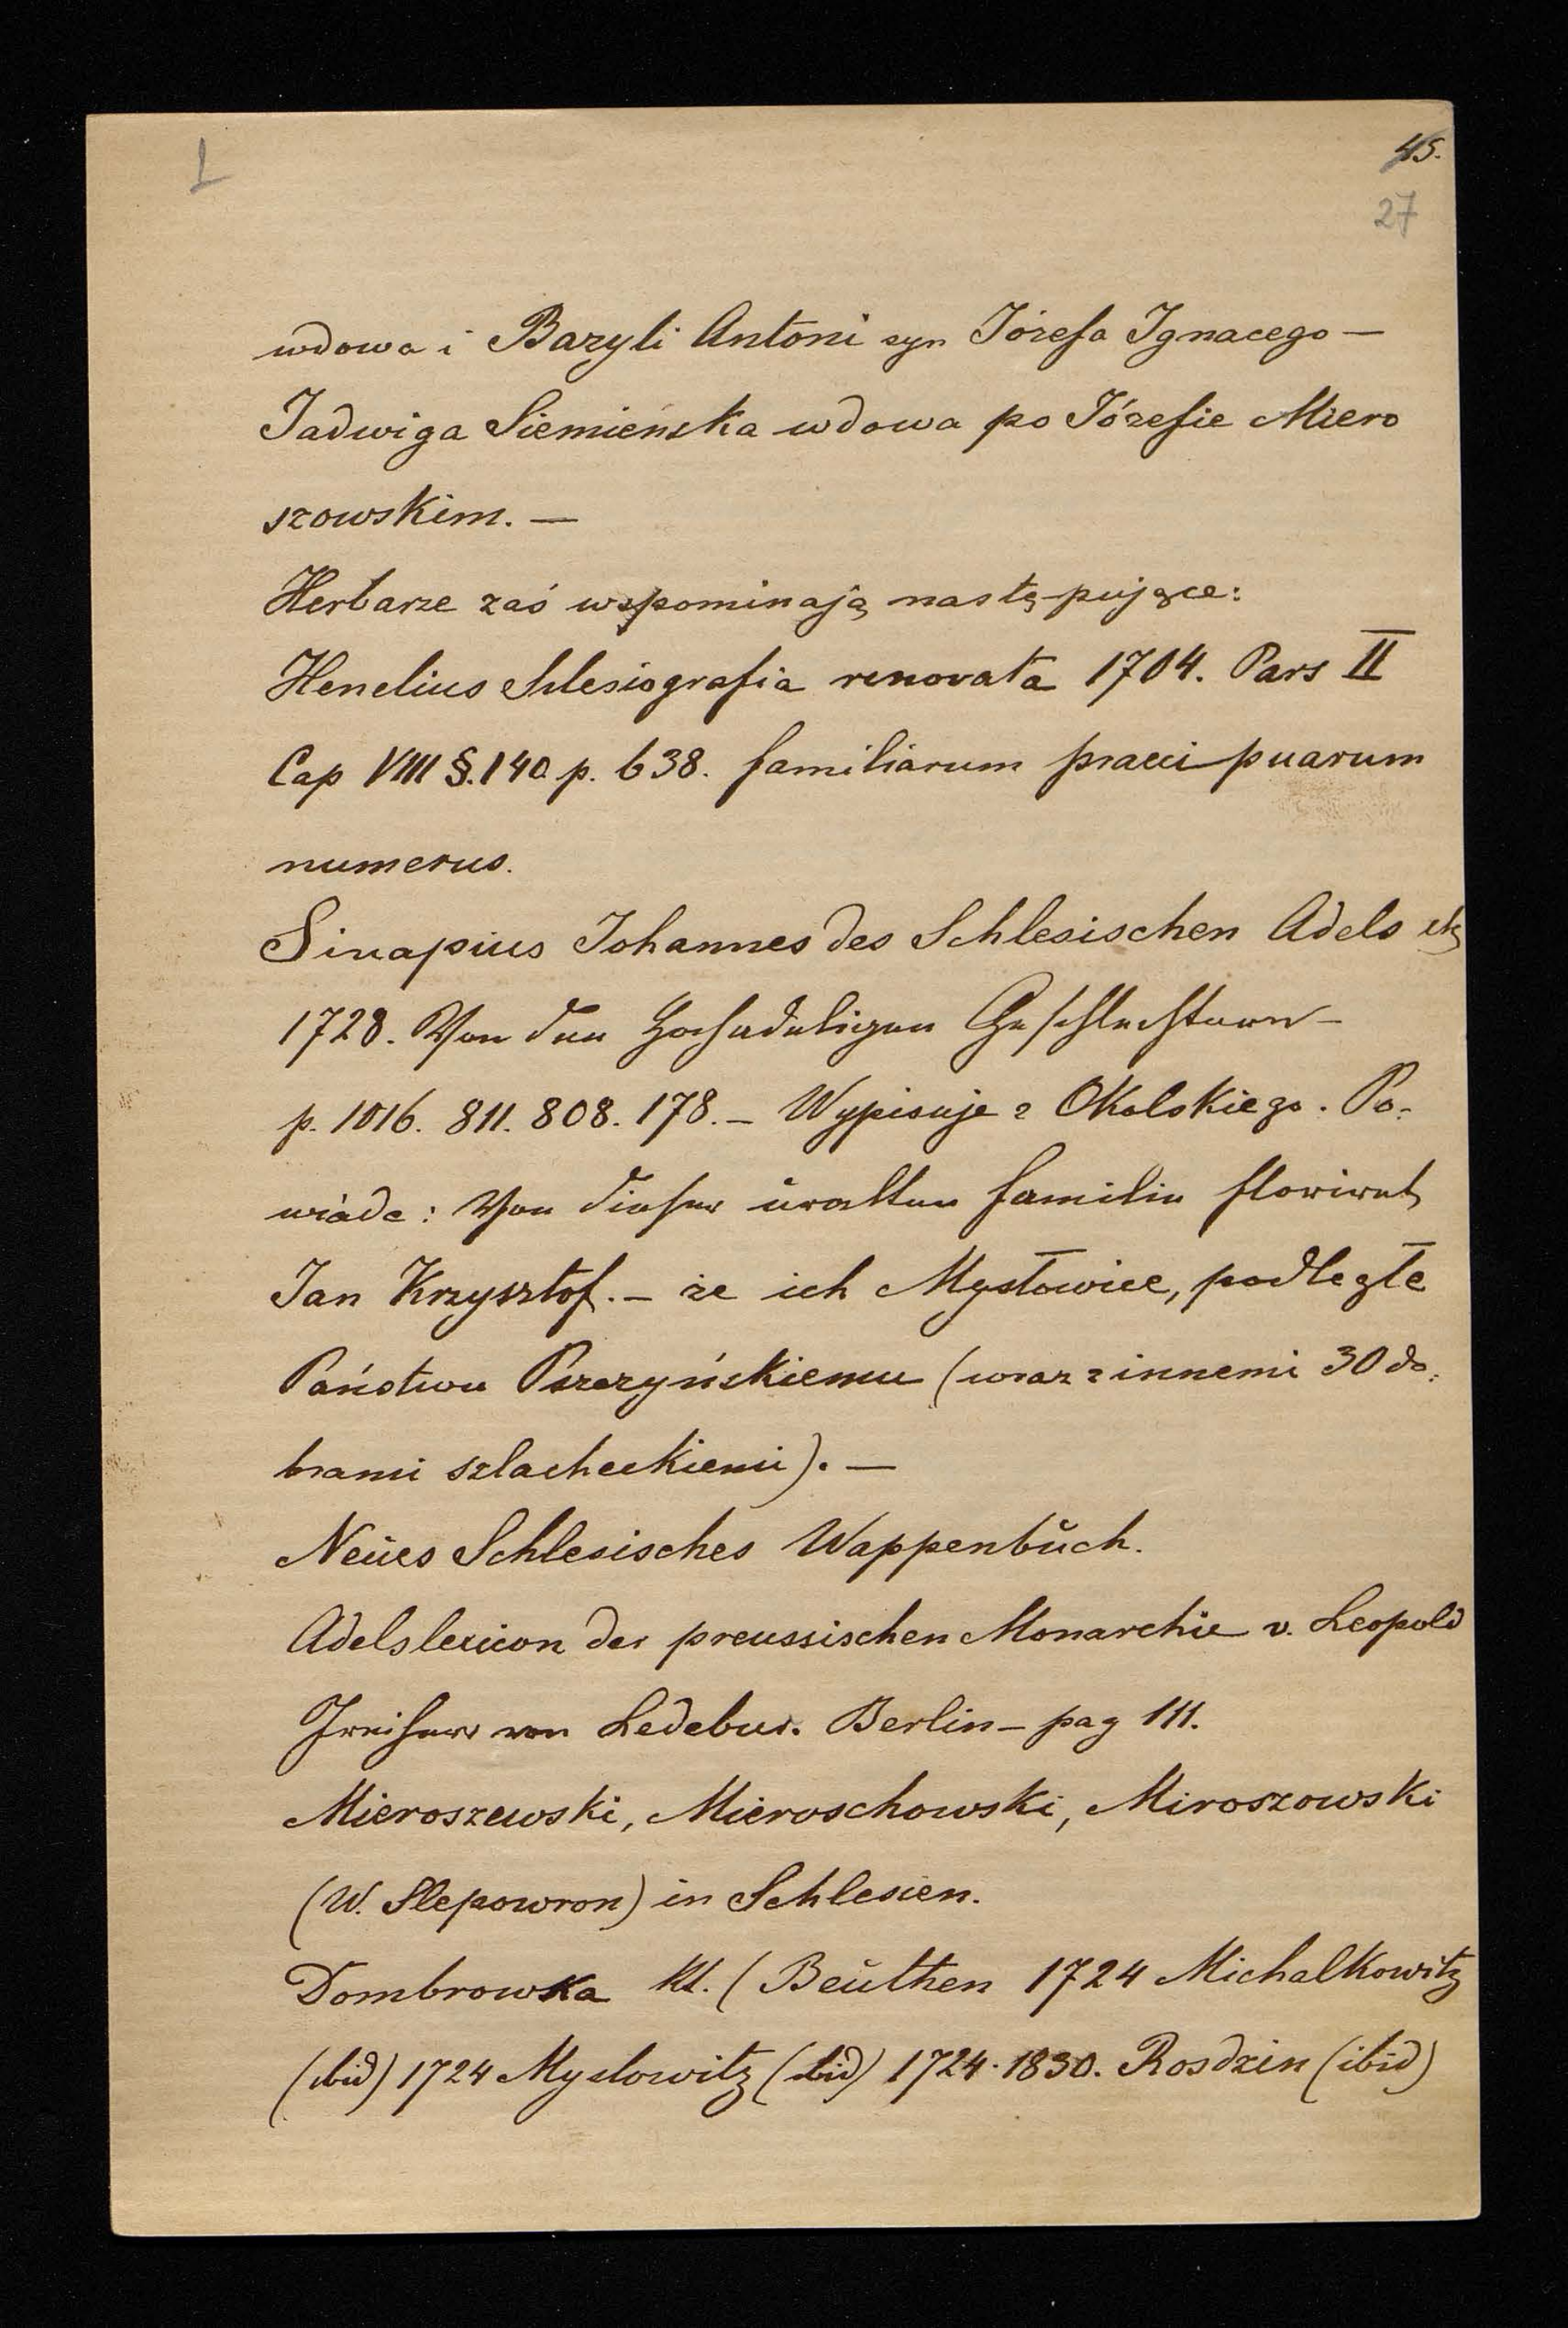 L
45.
27
wdowa i Bazyli Antoni syn Józefa Ignacego —
Jadwiga Siemieńska wdowa po Józefie Miero
szowskim. —
Herbarze zaś wspominają następujące:
Henelius Silesiografia renovata 1704. Pars II
Cap VIII §. 140. p. 638. familiarum praecipuarum
numerus.
Sinapius Johannes des Schlesischen Adels etc
1728. Von den Hochadeligen Geschlechtern —
p. 1016. 811. 808. 178. — Wypisuje z Okolskiego. Po-
wiada: Von dieser uralten Familie floriret
Jan Krzysztof. — że ich Mysłowice, podległe
Państwu Pszczyńskiemu (wraz z innemi 30 do-
brami szlacheckiemi). —
Neues Schlesisches Wappenbuch.
Adelslexicon der preussischen Monarchie v. Leopold
Freiherr von Ledebur. Berlin — pag 111.
Mieroszewski, Mieroschowski, Miroszowski
(W. Slepowron) in Schlesien.
Dombrowka Kl. (Beuthen 1724 Michalkowitz
(ibid) 1724 Myslowitz (ibid) 1724. 1830. Rosdzin (ibid)